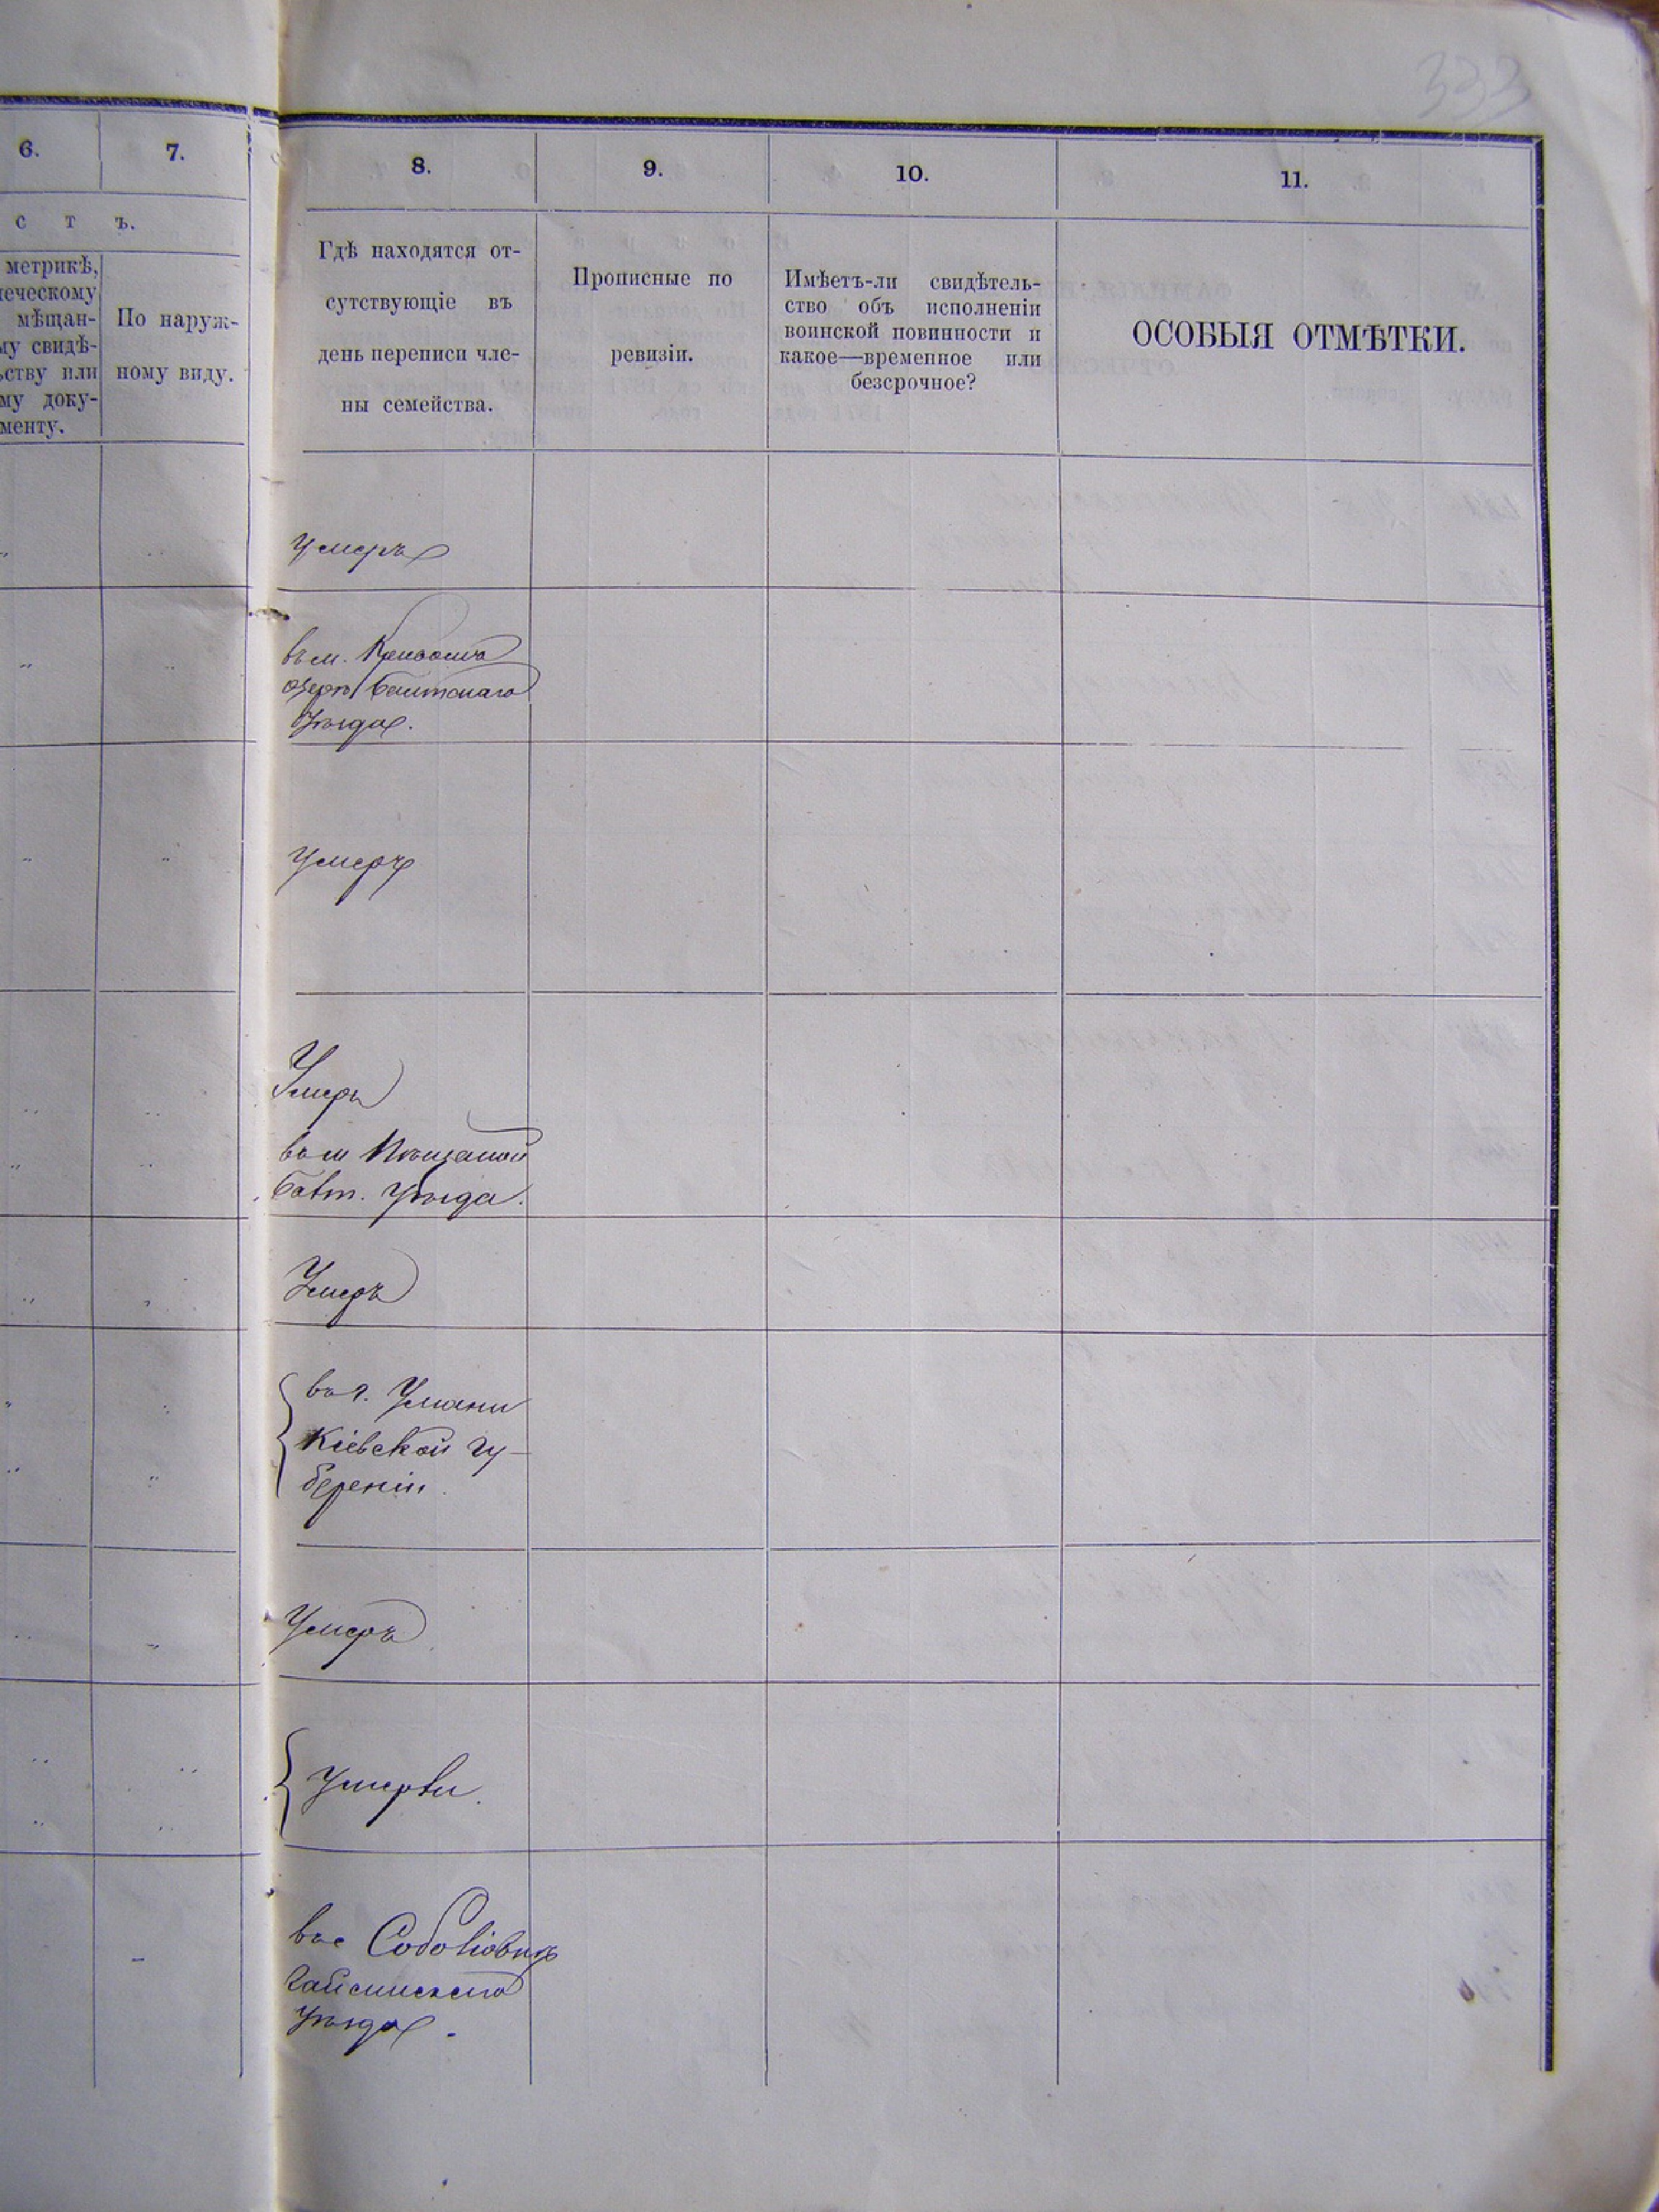 333
6.
7.
8.
9.
10.
11.
с т ъ.
метрикѣ,
ческому
мѣщан-
му свидѣ-
ству или
му доку-
менту.
По наруж-
ному виду.
Гдѣ находятся от-
сутствующіе въ
день переписи чле-
ны семейства.
Прописные по
ревизіи.
Имѣетъ-ли свидѣтель-
ство объ исполненіи
воинской повинности и
какое—временное или
безсрочное?
ОСОБЫЯ ОТМѢТКИ.
умеръ
въ м.
озеро Балтскаго
Уѣзда.
Умеръ
Умеръ
въ м. Песчаной
Балт. уѣзда.
Умеръ
въ г. Умани
Кіевской гу-
берніи.
Умеръ
Умерли.
въ с Соболіовкѣ
Гайсинскаго
уѣзда.